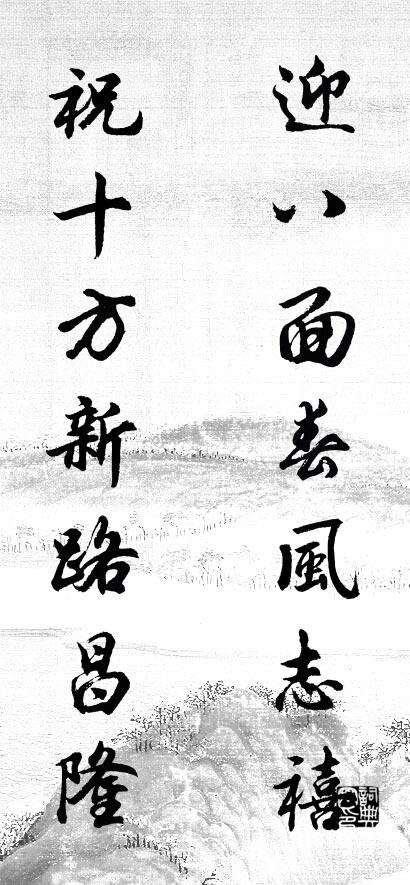 迎八面春風志禧
祝十方新路昌隆